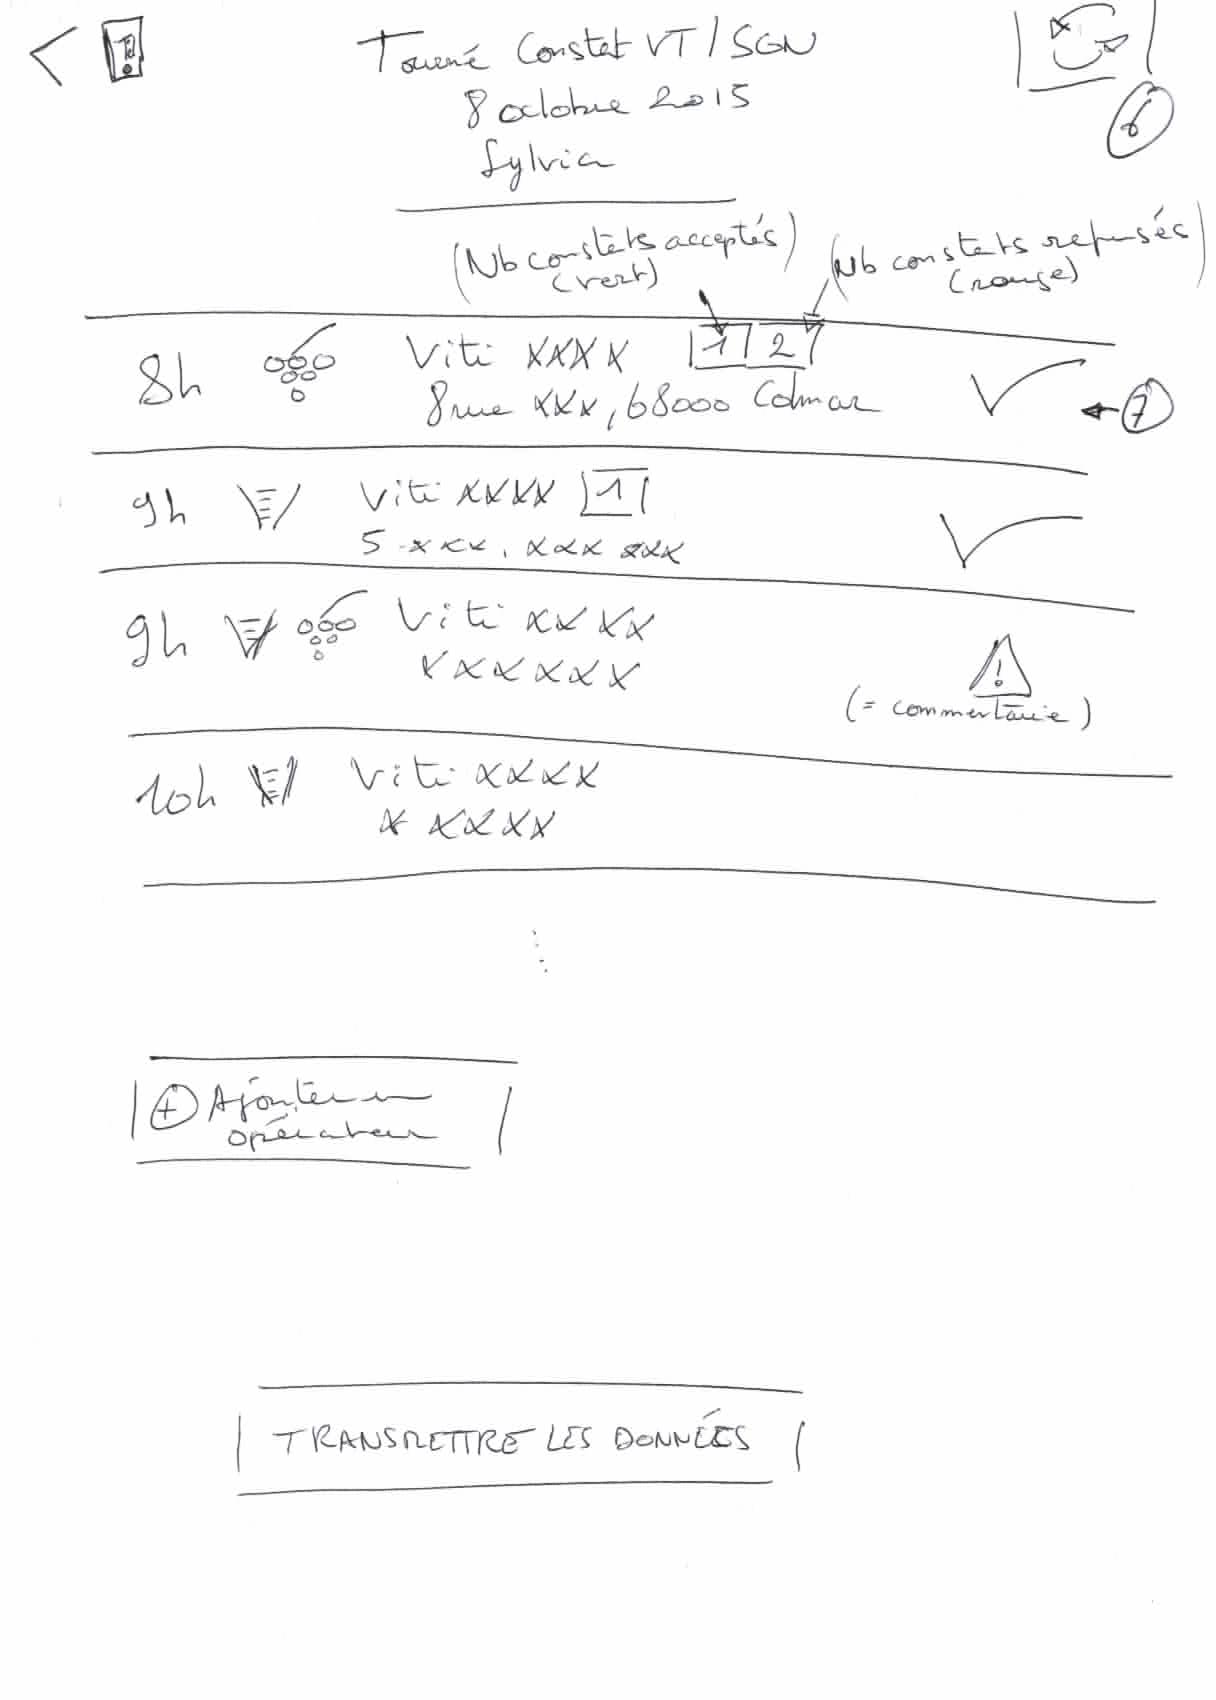 Tourné Constat VT/SGN
8 octobre 2015
Sylvia
6
(Nb constats acceptés)
(vert)
(Nb constats refusés)
(rouge)
8h Viti XXXX 1 2
8 rue xxx, 68000 Colmar
7
9h Viti XXXX 1
5 xxx, xxx xxx
9h Viti XX XX
XXXXXX
!
(= commentaire)
10h Viti XXXX
X XXXX
+ Ajouter un
opérateur
TRANSMETTRE LES DONNÉES